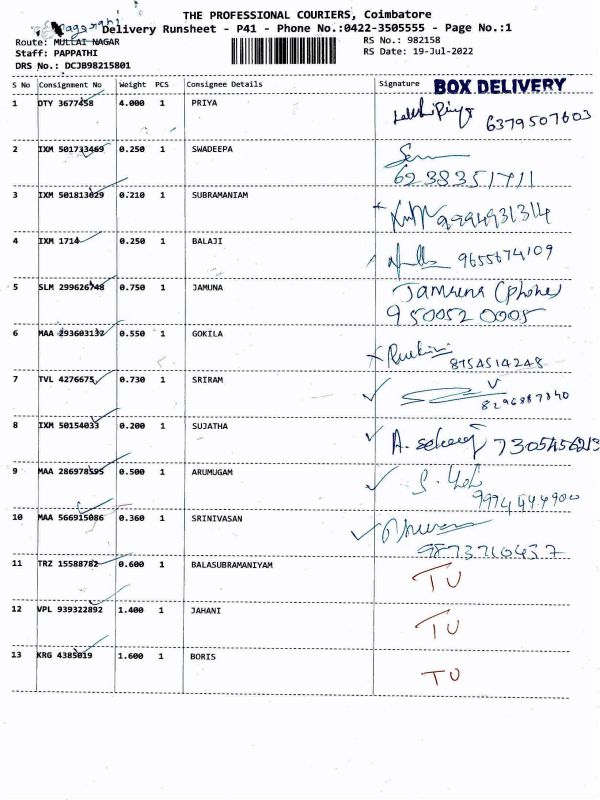 THE PROFESSIONAL COURIERS, Coimbatore
Delivery Runsheet - P41 - Phone No.:0422-3505555 - Page No.:1
Route: MULLAI NAGAR RS No.: 982158
Staff: PAPPATHI RS Date: 19-Jul-2022
DRS No.: DCJB98215801
S No Consignment No Weight PCS Consignee Details Signature BOX DELIVERY
1 DTY 3677458 4.000 1 PRIYA 6379507603
2 IXM 501733469 0.250 1 SWADEEPA
6238351711
3 IXM 501813029 0.210 1 SUBRAMANIAM 9994931314
4 IXM 1714 0.250 1 BALAJI 9655674109
5 SLM 299626748 0.750 1 JAMUNA Jamuna (phone)
9500520005
6 MAA 293603132 0.550 1 GOKILA
8754514248
7 TVL 4276675 0.730 1 SRIRAM
8296887840
8 IXM 50154033 0.200 1 SUJATHA
9 MAA 286978595 0.500 1 ARUMUGAM
9994444900
10 MAA 566915086 0.360 1 SRINIVASAN
9873710437
11 TRZ 15588782 0.600 1 BALASUBRAMANIYAM TU
12 VPL 939322892 1.400 1 JAHANI TU
13 KRG 4385019 1.600 1 BORIS TU